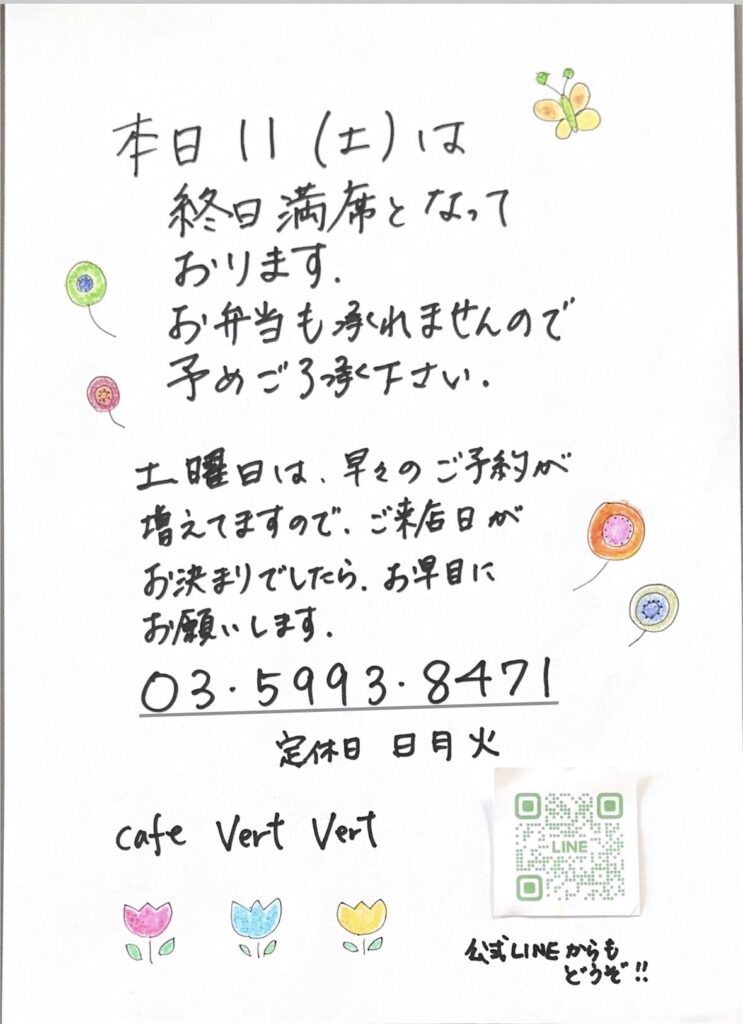 本日 11 (土) は
終日満席となって
おります.
お弁当も承れませんので
予めご了承下さい.
土曜日は、早々のご予約が
増えてますので、ご来店日が
お決まりでしたら、お早目に
お願いします.
03・5993・8471
定休日 日月火
cafe Vert Vert
LINE
公式LINEからも
どうぞ!!